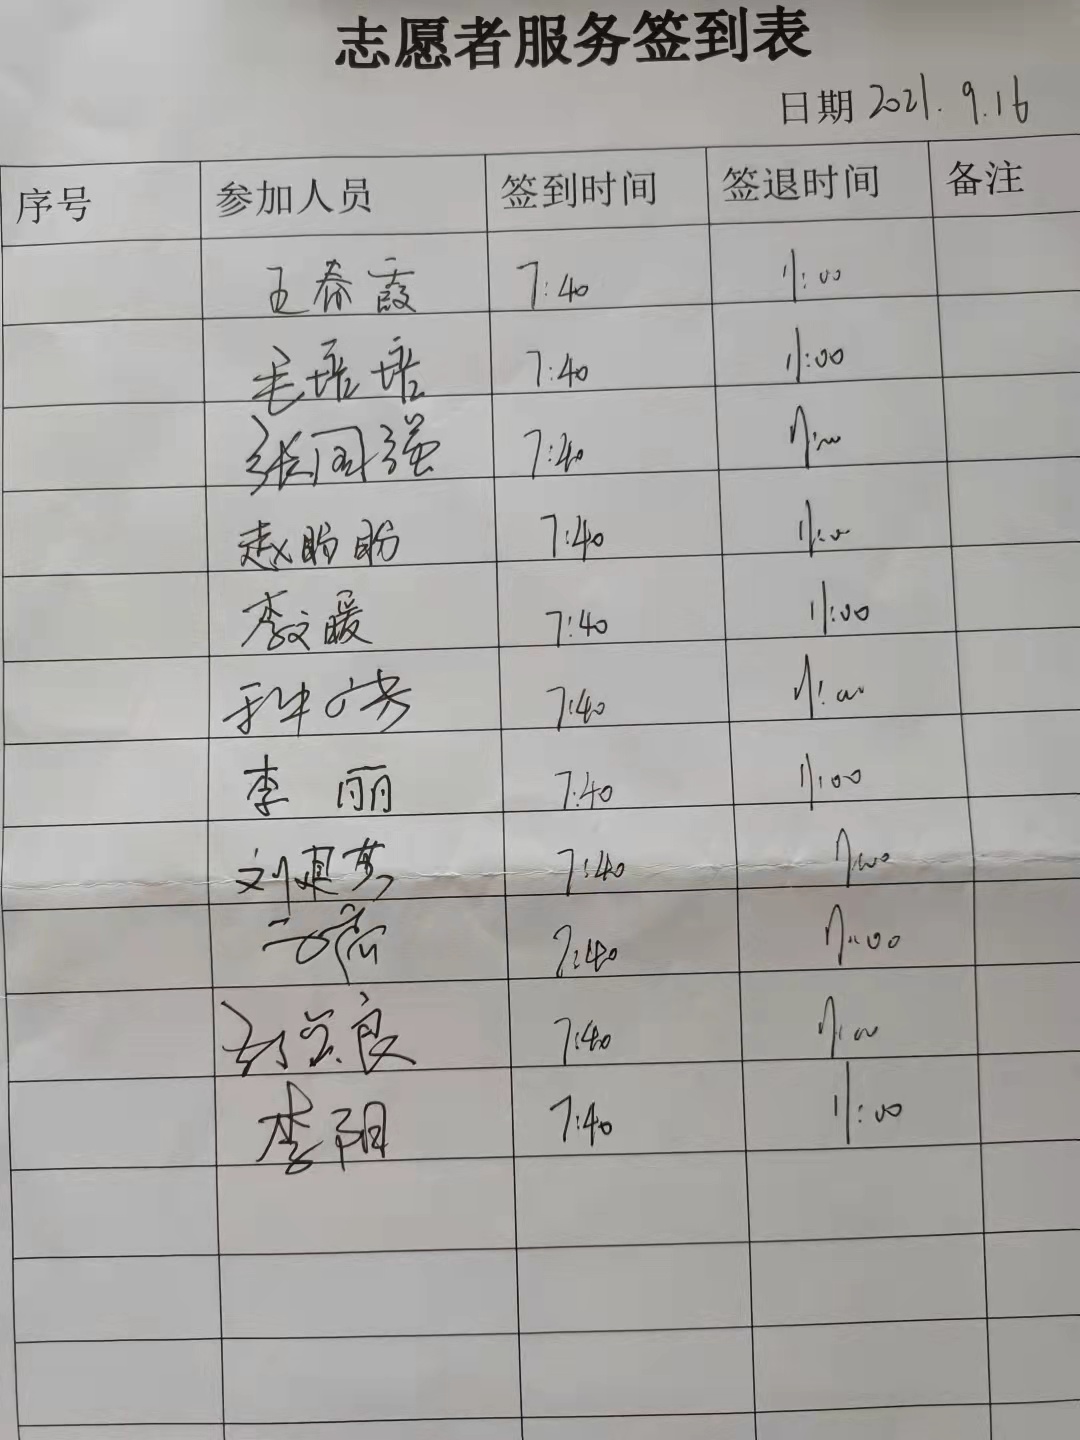 志愿者服务签到表
日期 2021.9.16
序号 参加人员 签到时间 签退时间 备注
王春霞 7:40 11:00
毛培培 7:40 11:00
张国强 7:40 11:00
赵盼盼 7:40 11:00
李文暖 7:40 11:00
7:40 11:00
李丽 7:40 11:00
刘 7:40 11:00
7:40 11:00
良 7:40 11:00
李阳 7:40 11:00